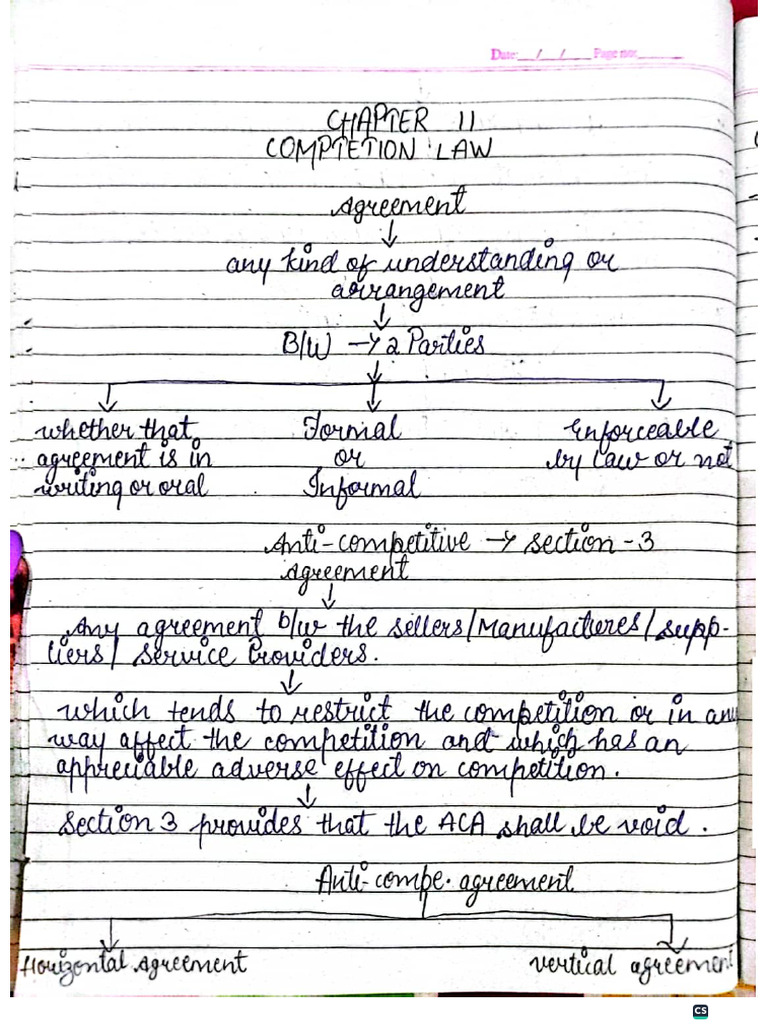 Date: __/__/__ Page no:______
CHAPTER 11
COMPTETION LAW
Agreement
↓
any kind of understanding or
arrangement
↓
B/W → 2 Parties
whether that Formal Enforceable
agreement is in or by law or not
writing or oral Informal
Anti-competitive → section-3
Agreement
↓
Any agreement b/w the sellers/Manufactures/supp-
liers/ service Providers.
↓
which tends to restrict the competition or in any
way affect the competition and which has an
appreciable adverse effect on competition.
↓
Section 3 provides that the ACA shall be void.
Anti-compe. agreement
Horizontal Agreement vertical agreement
CS